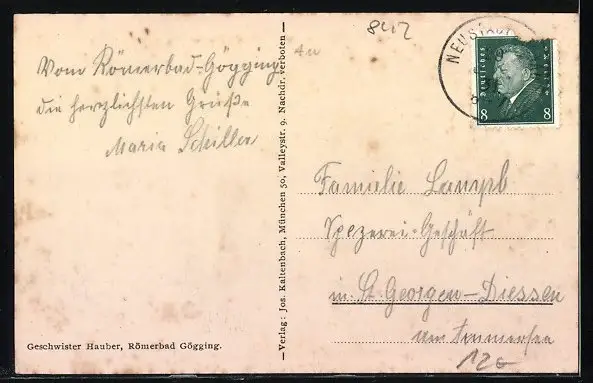 8412
4u
NEUSTADT
Deutsches Reich
8 8
Vom Römerbad-Gögging
die herzlichsten Grüße
Maria Schiller
– Verlag: Jos. Kaltenbach, München 50, Valleystr. 9. Nachdr. verboten –
Familie Lampl
Spezerei-Geschäft
in St. Georgen-Diessen
am Ammersee
12.-
Geschwister Hauber, Römerbad Gögging.